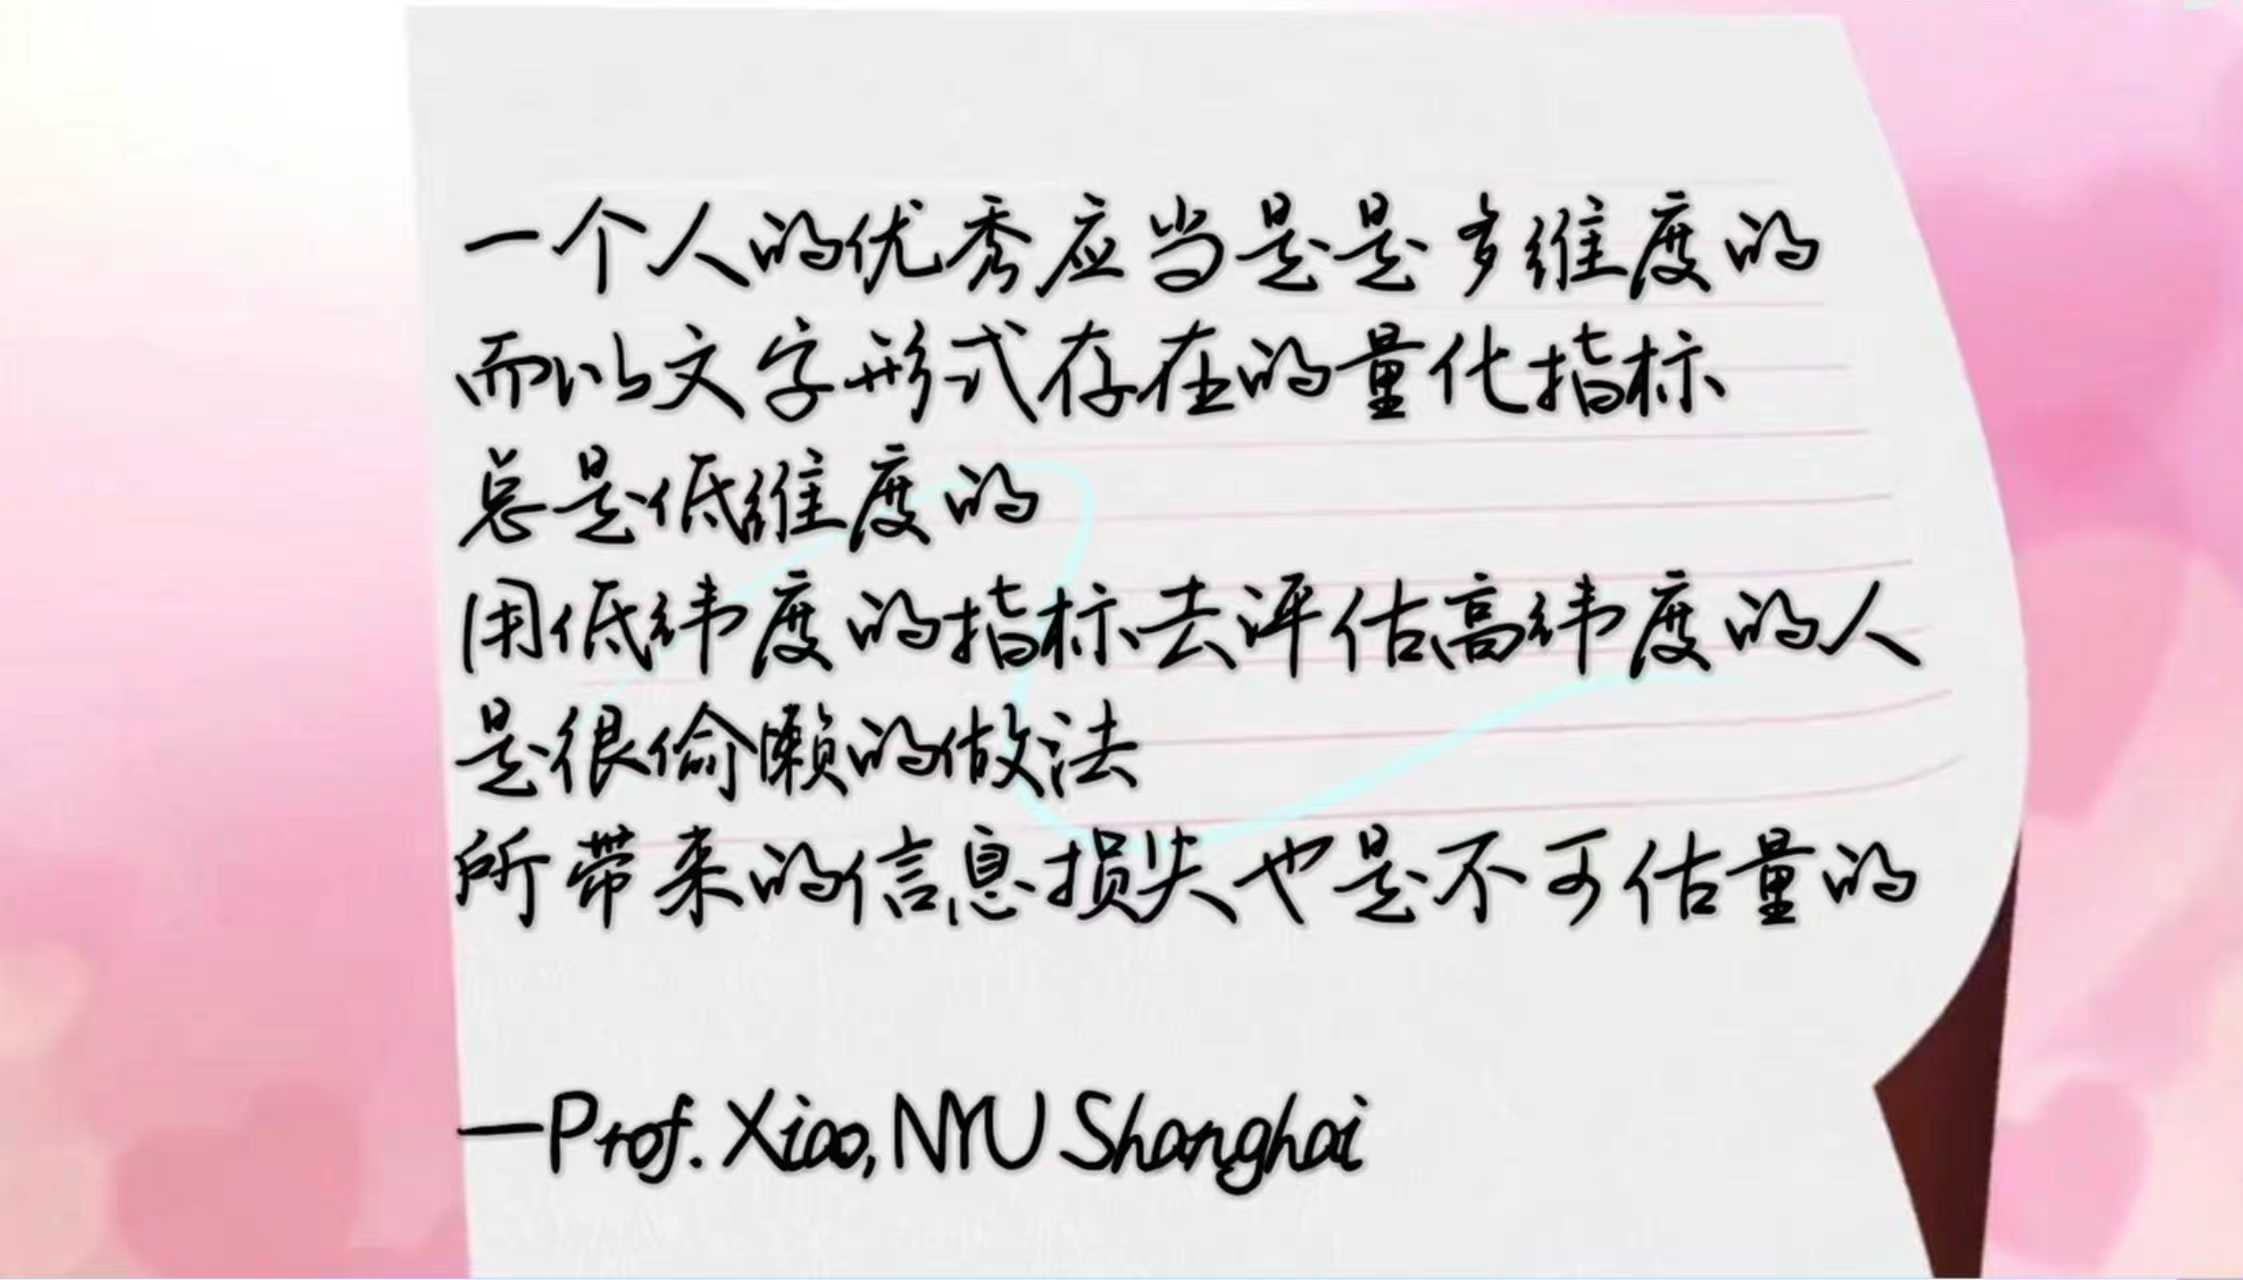 一个人的优秀应当是是多维度的
而以文字形式存在的量化指标
总是低维度的
用低纬度的指标去评估高纬度的人
是很偷懒的做法
所带来的信息损失也是不可估量的
—Prof. Xiao, NYU Shanghai